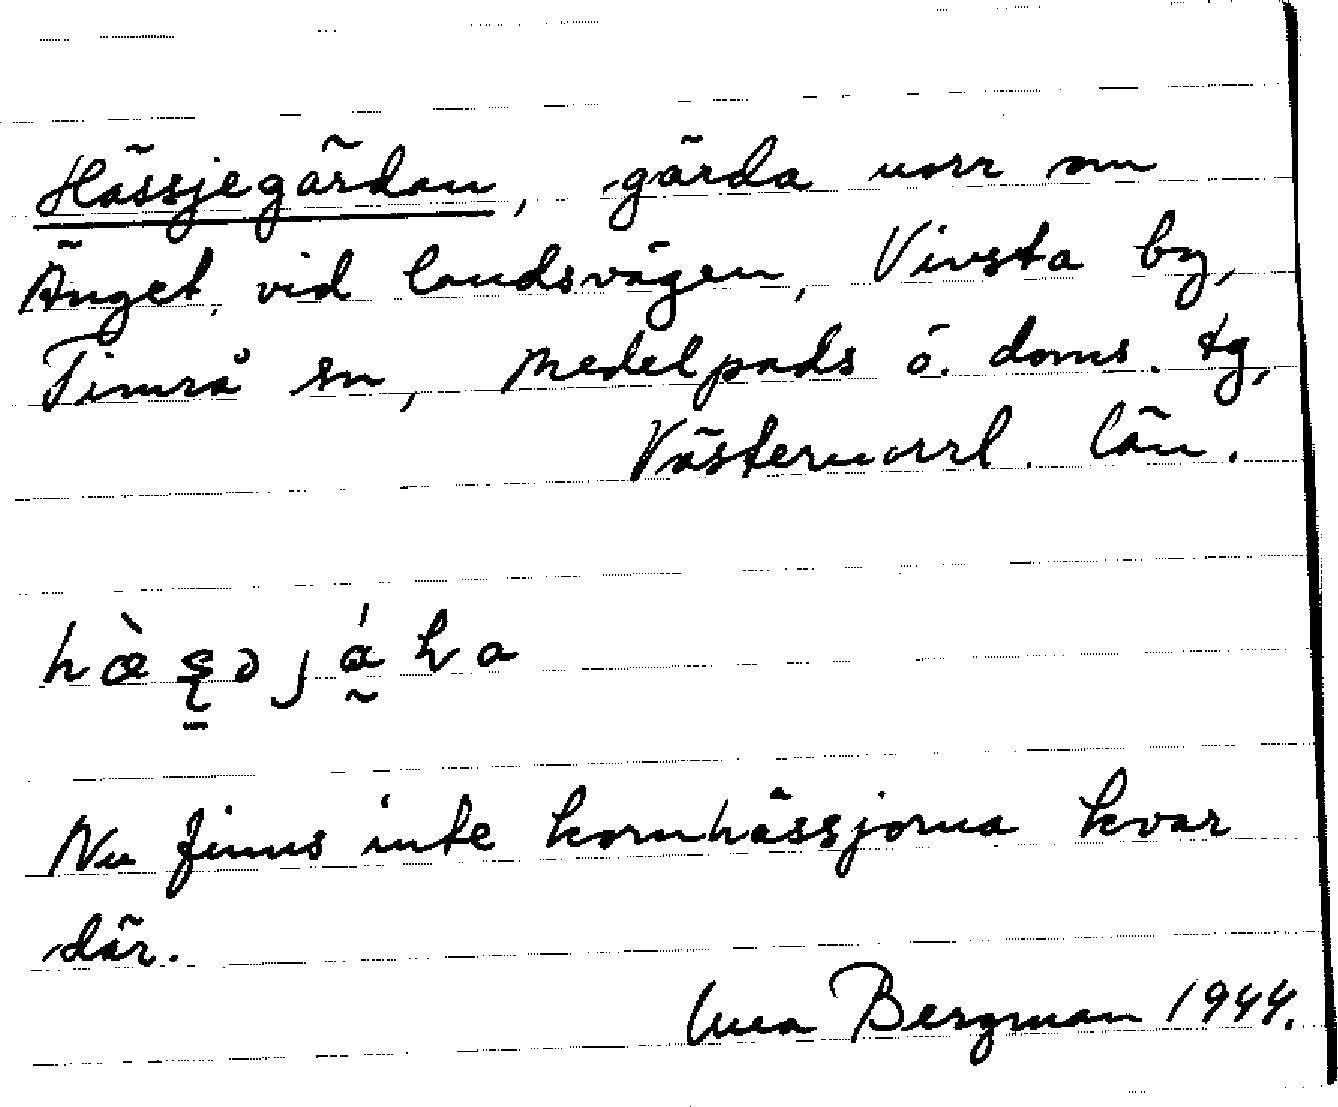 Hässjegärdan, gärda norr om
Änget, vid landsvägen, Vivsta by,
Timrå sn, Medelpads ö. doms. tg,
Västernorrl. län.
Nu finns inte kornhässjorna kvar
där.
Bergman 1944.